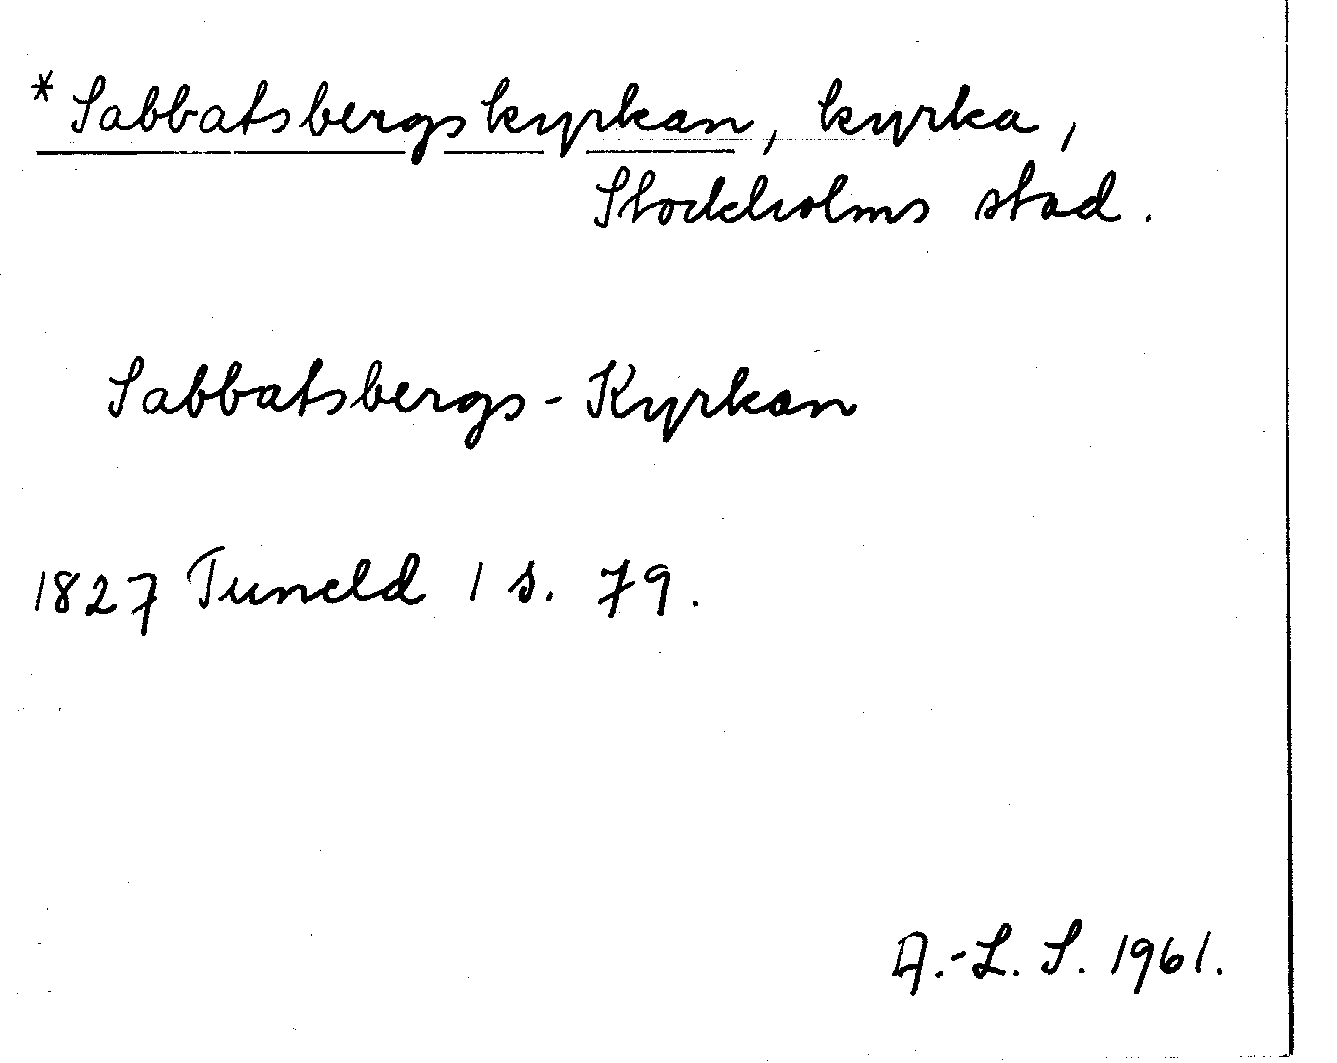 * Sabbatsbergskyrkan, kyrka,
Stockholms stad.
Sabbatsbergs-Kyrkan
1827 Tuneld 1 s. 79.
A.-L. S. 1961.